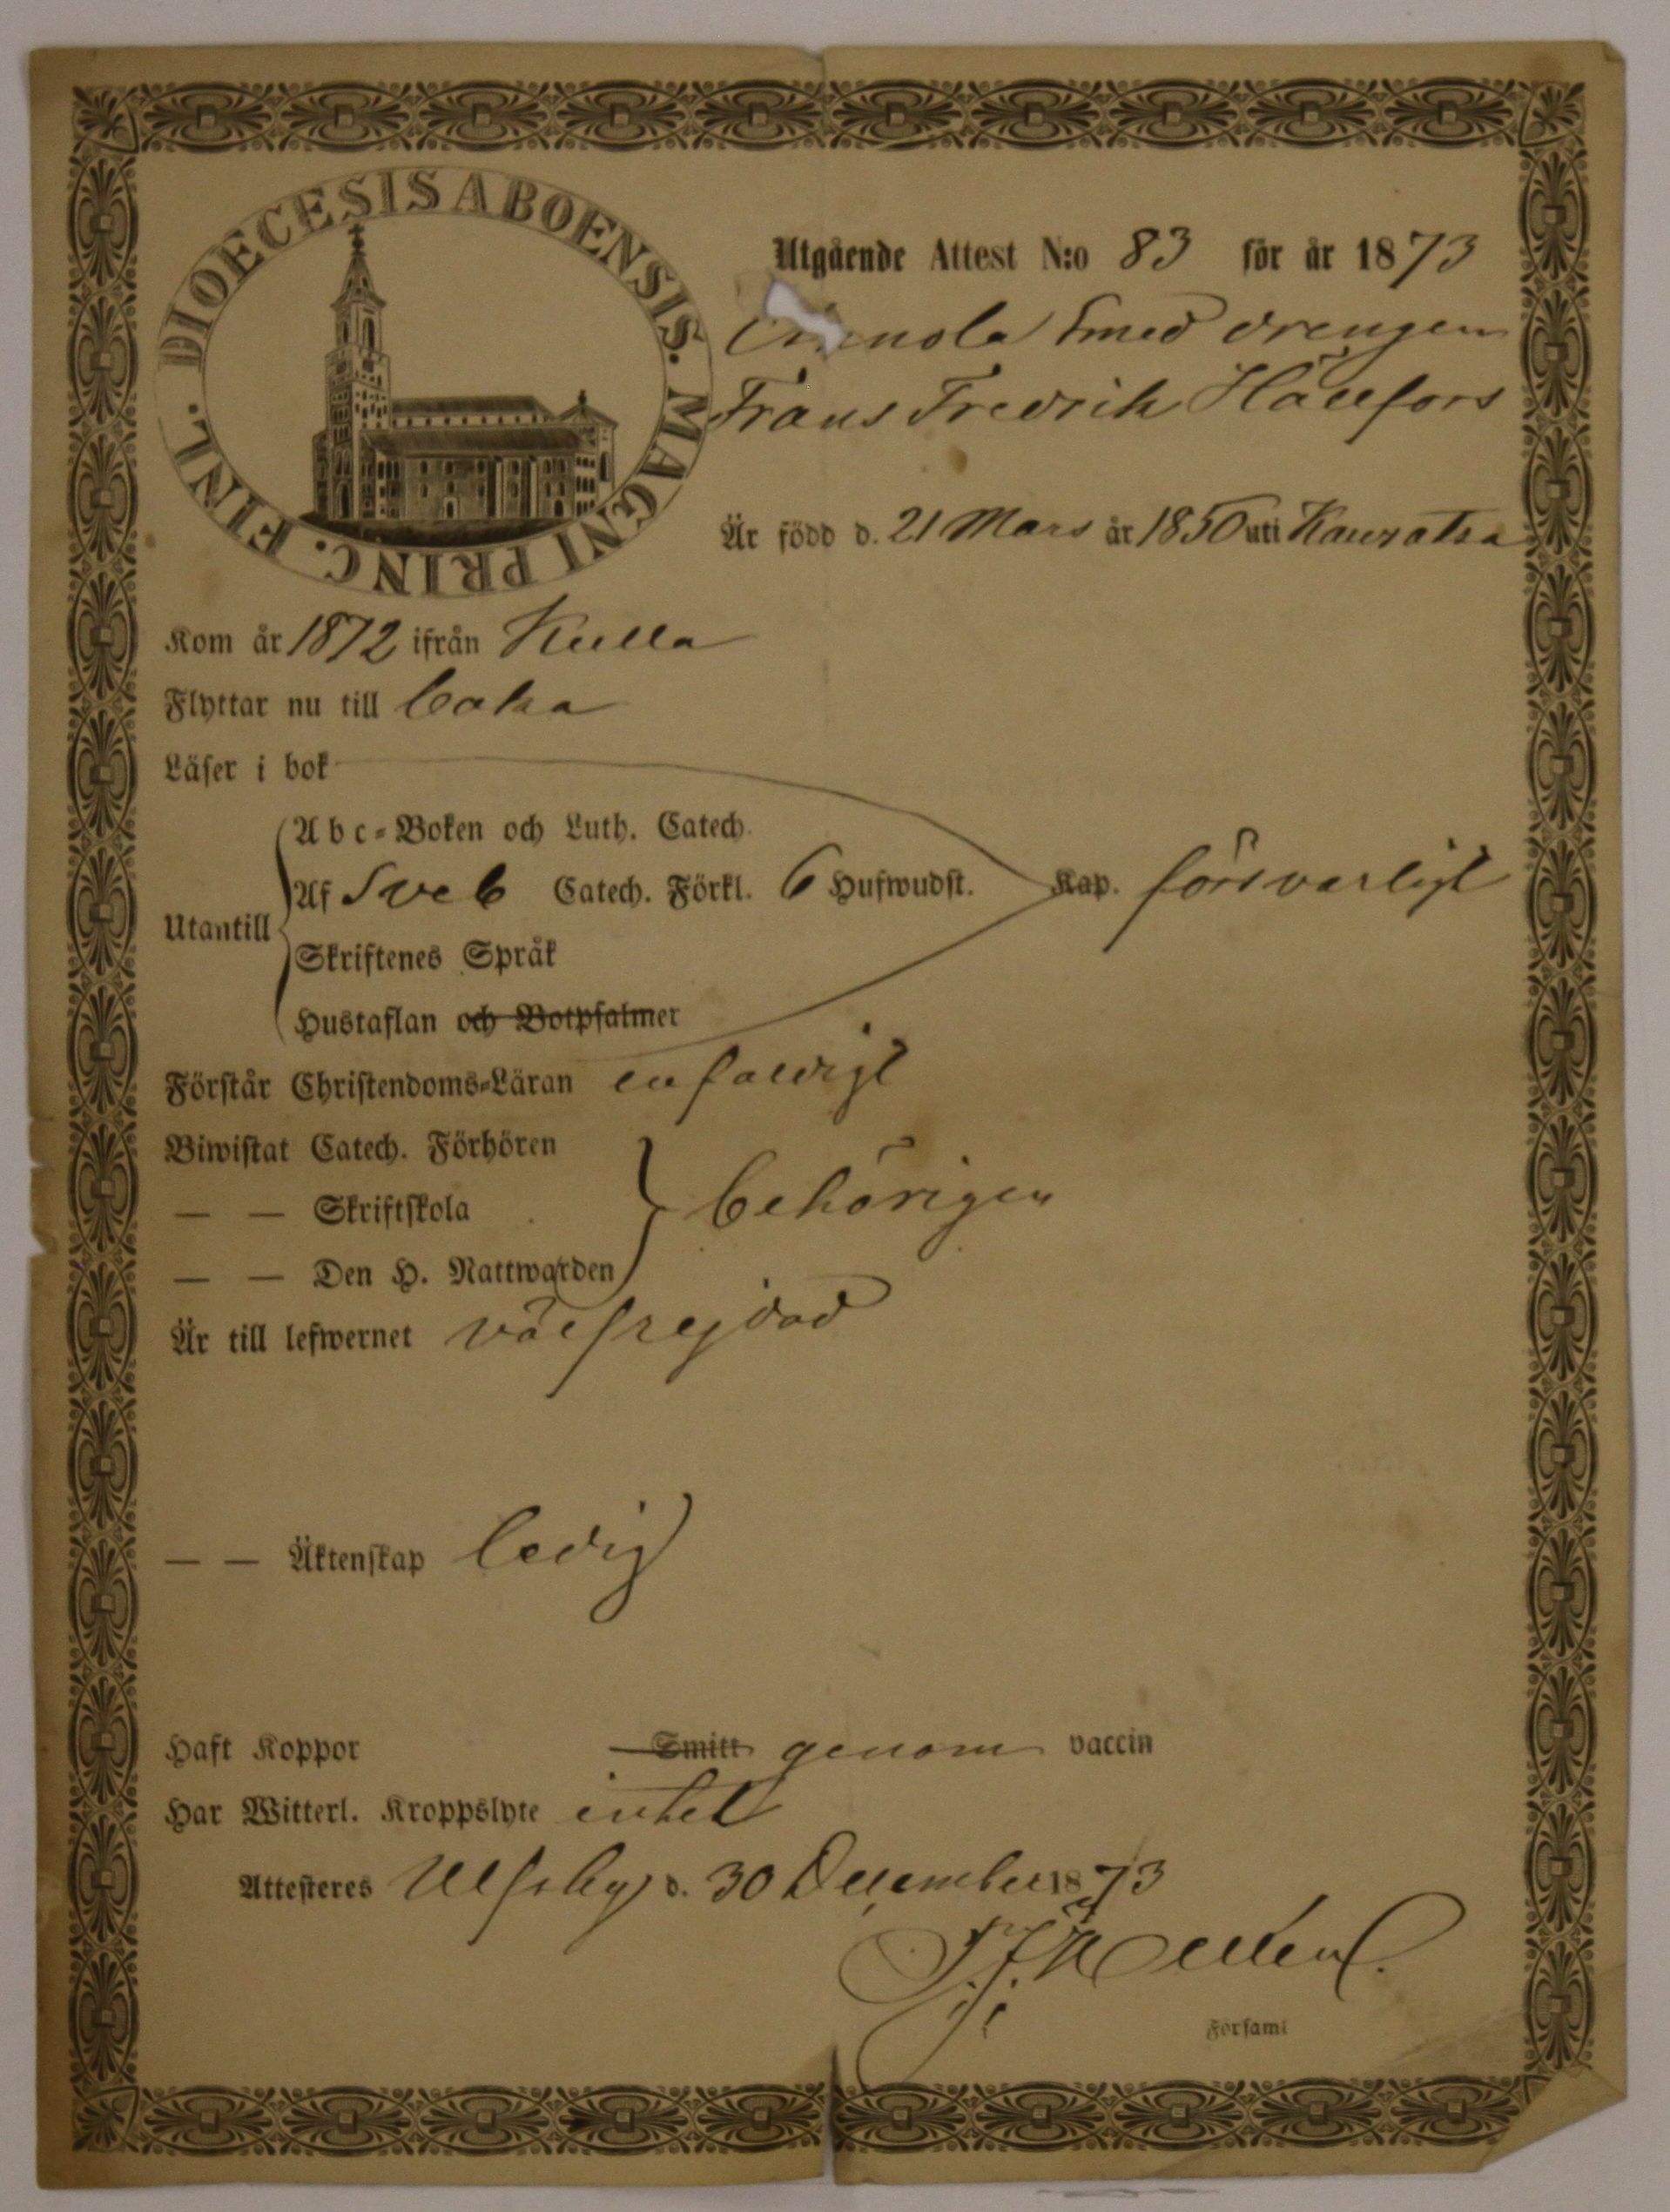 DIOECESIS ABOENSIS. MAGNI PRINC. FINL.
Utgående Attest N:o 83 för år 1873
Smed drengen
Frans Fredrik Hällfors
Är född d. 21 Mars år 1850 uti Kauvatsa
Kom år 1872 ifrån Kulla
Flyttar nu till
Läser i bok
Abc-Boken och Luth. Catech.
Af Sveb Catech. Förkl. 6 Hufwudst. Kap. försvarligt
Utantill
Skriftenes Språk
Hustaflan och Botpsalmer
Förstår Christendoms-Läran enfaldigt
Biwistat Catech. Förhören
— — Skriftskola behörigen
— — Den H. Nattwarden
Är till lefwernet välfrejdad
— — Äktenskap ledig
Haft Koppor Smitt genom vaccin
Har Witterl. Kroppslyte intet
Attesteres Ulfsby d. 30 December 1873
Församl